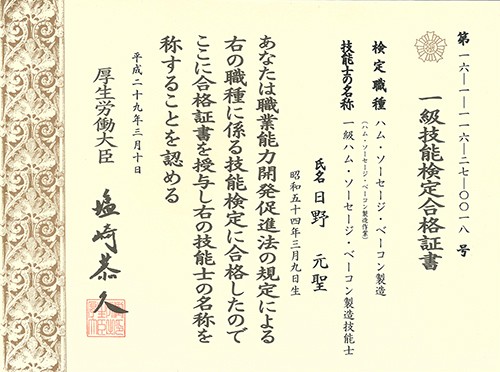 第一六―一―一一六―二七―〇〇一八 号
一級技能検定合格証書
検定職種 ハム・ソーセージ・ベーコン製造
(ハム・ソーセージ・ベーコン製造作業)
技能士の名称 一級ハム・ソーセージ・ベーコン製造技能士
氏名 日野 元聖
昭和五十四年三月九日生
あなたは職業能力開発促進法の規定による
右の職種に係る技能検定に合格したので
ここに合格証書を授与し右の技能士の名称を
称することを認める
平成二十九年三月十日
厚生労働大臣 塩崎恭久